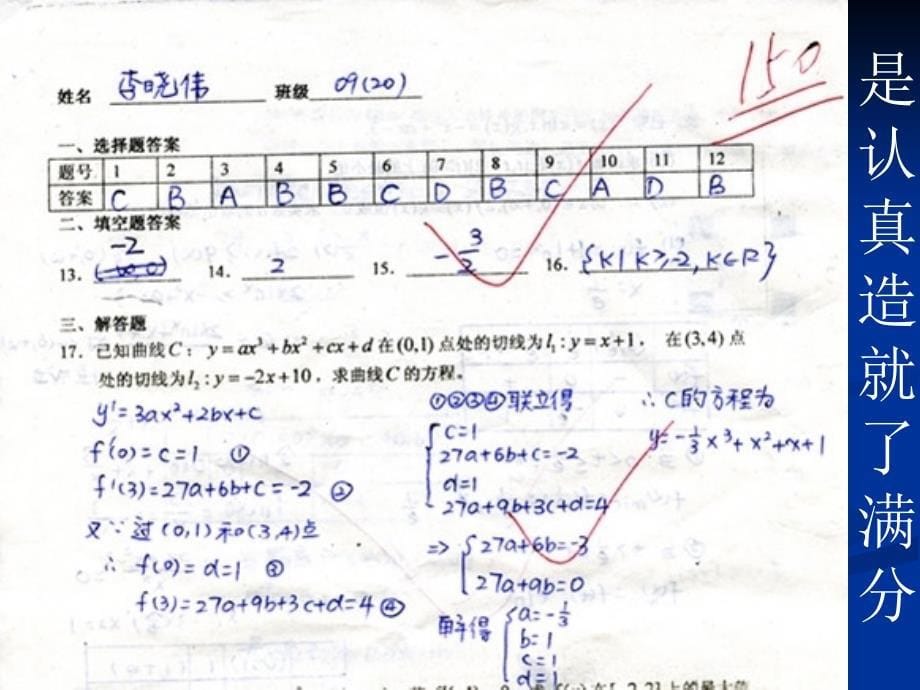 150
姓名 李晓伟 班级 09(20)
一、选择题答案
题号 1 2 3 4 5 6 7 8 9 10 11 12
答案 C B A B B C D B C A D B
二、填空题答案
13. -2 14. 2 15. -3/2 16. {K|K≥-2,K∈R}
三、解答题
17. 已知曲线C：y=ax³+bx²+cx+d在(0,1)点处的切线为l₁:y=x+1， 在(3,4)点
处的切线为l₂:y=-2x+10，求曲线C的方程。
y'=3ax²+2bx+c
f'(0)=c=1 ①
f'(3)=27a+6b+c=-2 ②
又∵过(0,1)和(3,4)点
∴f(0)=d=1 ③
f(3)=27a+9b+3c+d=4 ④
①②③④联立得
c=1
27a+6b+c=-2
d=1
27a+9b+3c+d=4
=> 27a+6b=-3
27a+9b=0
解得 a=-1/3
b=1
c=1
d=1
∴C的方程为
y=-1/3x³+x²+x+1
是认真造就了满分